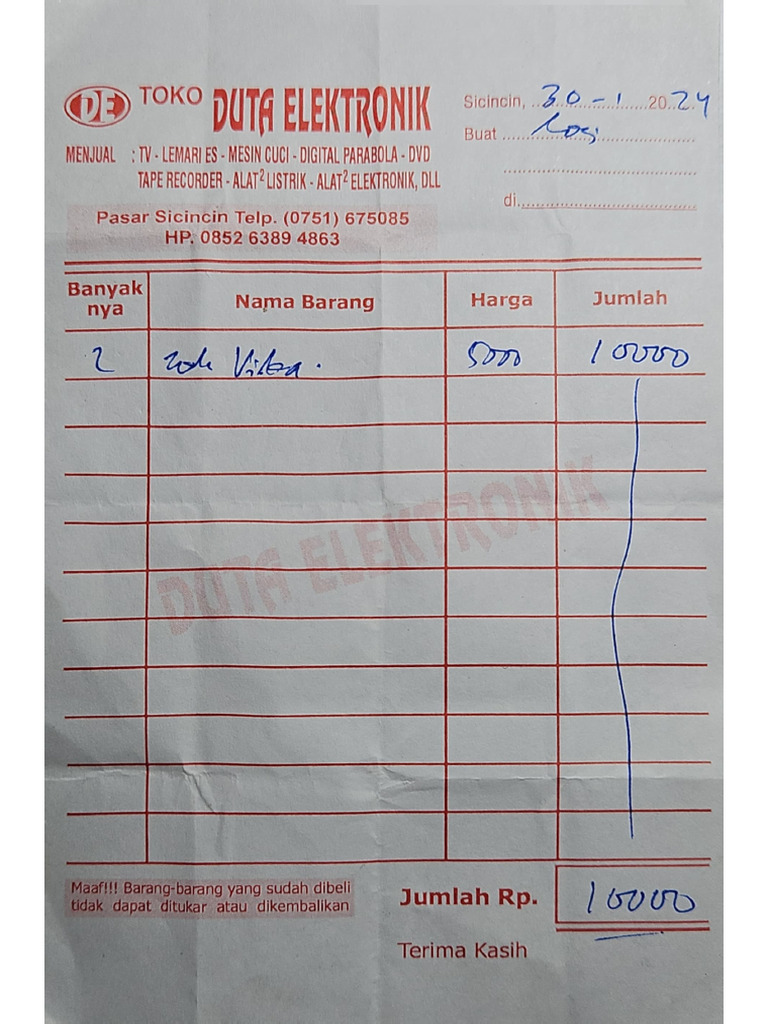 DE TOKO DUTA ELEKTRONIK
MENJUAL : TV - LEMARI ES - MESIN CUCI - DIGITAL PARABOLA - DVD
TAPE RECORDER - ALAT² LISTRIK - ALAT² ELEKTRONIK, DLL
Pasar Sicincin Telp. (0751) 675085
HP. 0852 6389 4863
Sicincin, 30 - 1 2024
Buat
di
Banyak nya Nama Barang Harga Jumlah
2 5000 10000
DUTA ELEKTRONIK
Maaf!!! Barang-barang yang sudah dibeli
tidak dapat ditukar atau dikembalikan
Jumlah Rp. 10000
Terima Kasih